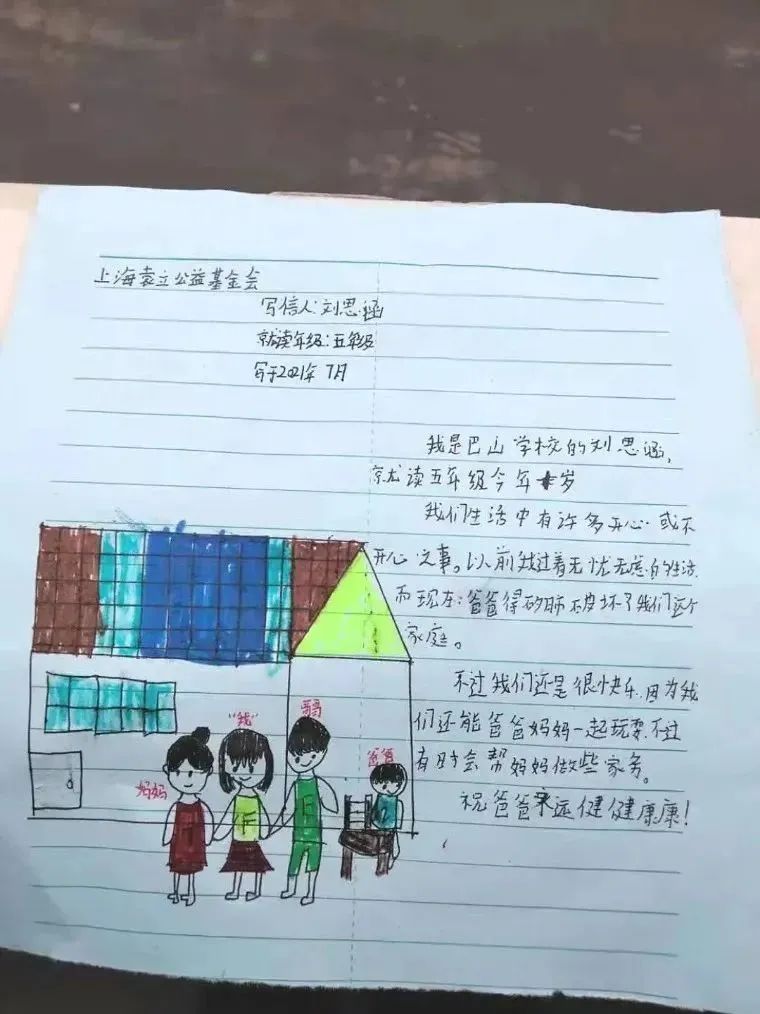 上海袁立公益基金会
写信人:刘思涵
就读年级:五年级
写于2021年 7月
我是巴山学校的刘思涵,
就读五年级今年 岁
我们生活中有许多开心 或不
开心之事。以前我过着无忧无虑的生活
而现在:爸爸得矽肺破坏了我们这个
家庭。
不过我们还是很快乐.因为我
们还能爸爸妈妈一起玩耍.不过
有时会帮妈妈做些家务。
祝爸爸永远健健康康!
"我"
哥哥
爸爸
妈妈